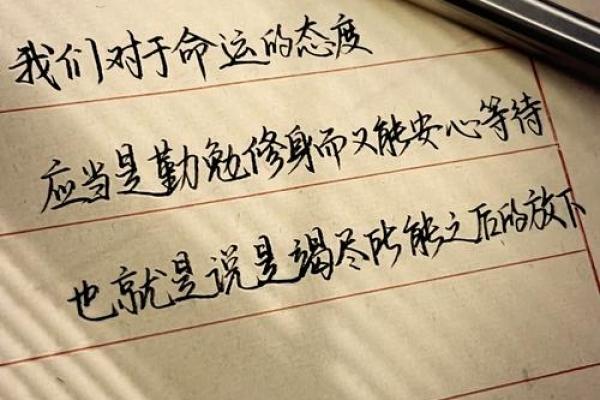 我们对于命运的态度
应当是勤勉修身而又能安心等待
也就是说是竭尽所能之后的放下